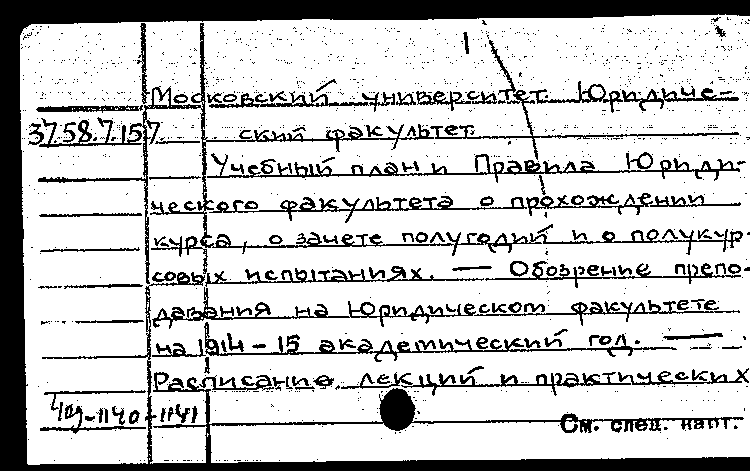 1
Московский университет. Юридиче-
3758.7.157 ский факультет.
Учебный план и Правила Юриди-
ческого факультета о прохождении
курса, о зачете полугодий и о полукур-
совых испытаниях. — Обозрение препо-
давания на Юридическом факультете
на 1914-15 академический год. —
Расписание лекций и практических
-1140-1141
См. след. карт.